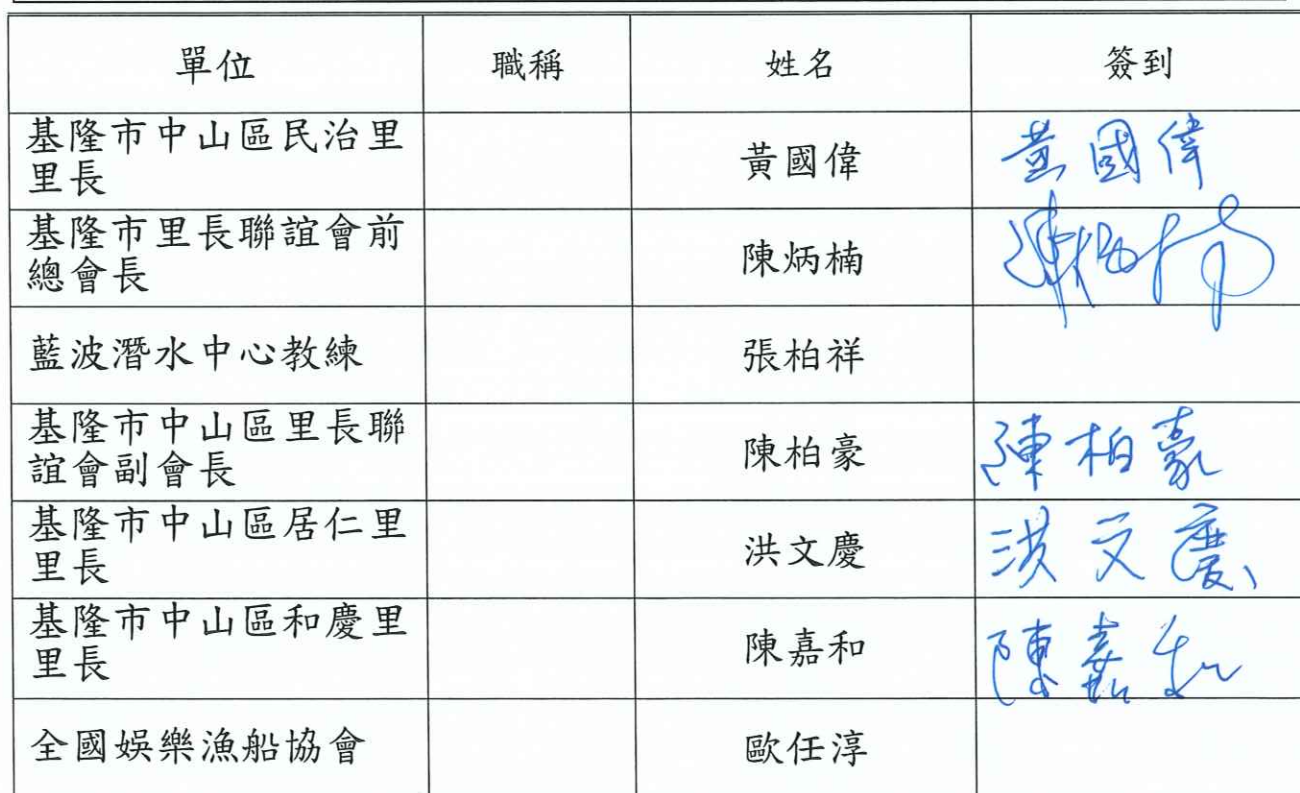 單位 職稱 姓名 簽到
基隆市中山區民治里
里長
黃國偉 黃國偉
基隆市里長聯誼會前
總會長
陳炳楠 陳炳楠
藍波潛水中心教練 張柏祥
基隆市中山區里長聯
誼會副會長
陳柏豪 陳柏豪
基隆市中山區居仁里
里長
洪文慶 洪文慶
基隆市中山區和慶里
里長
陳嘉和 陳嘉和
全國娛樂漁船協會 歐任淳